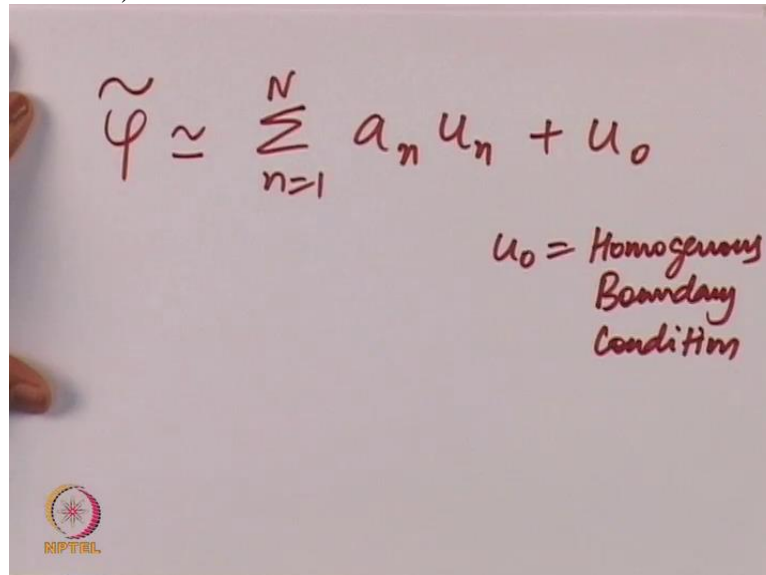 φ̃ ≃ Σ_{n=1}^{N} a_n u_n + u_0
u_0 = Homogenous
Boundary
Condition
NPTEL